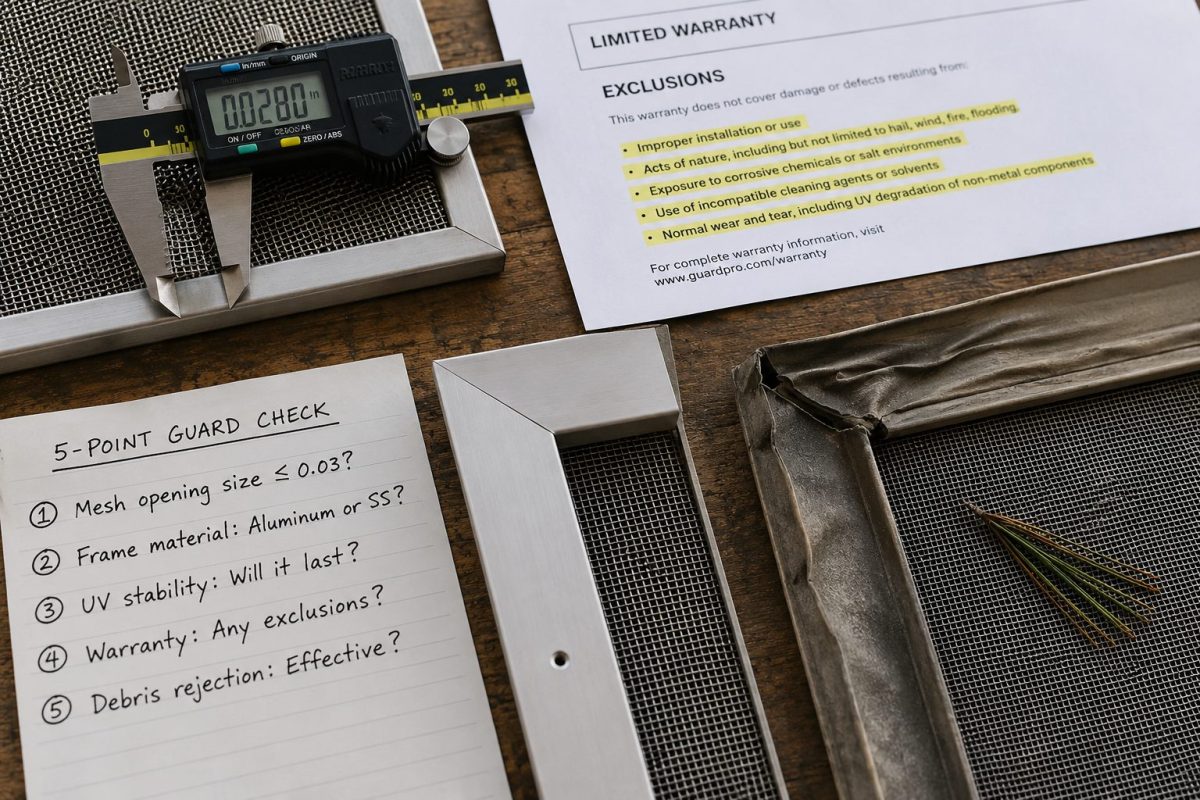 in/mm ORIGIN
0.0280 in
ON / OFF ZERO / ABS
0
20 20 30
LIMITED WARRANTY
EXCLUSIONS
This warranty does not cover damage or defects resulting from:
• Improper installation or use
• Acts of nature, including but not limited to hail, wind, fire, flooding.
• Exposure to corrosive chemicals or salt environments
• Use of incompatible cleaning agents or solvents
• Normal wear and tear, including UV degradation of non-metal components
For complete warranty information, visit
www.guardpro.com/warranty
5-POINT GUARD CHECK
① Mesh opening size ≤ 0.03?
② Frame material: Aluminum or SS?
③ UV stability: Will it last?
④ Warranty: Any exclusions?
⑤ Debris rejection: Effective?